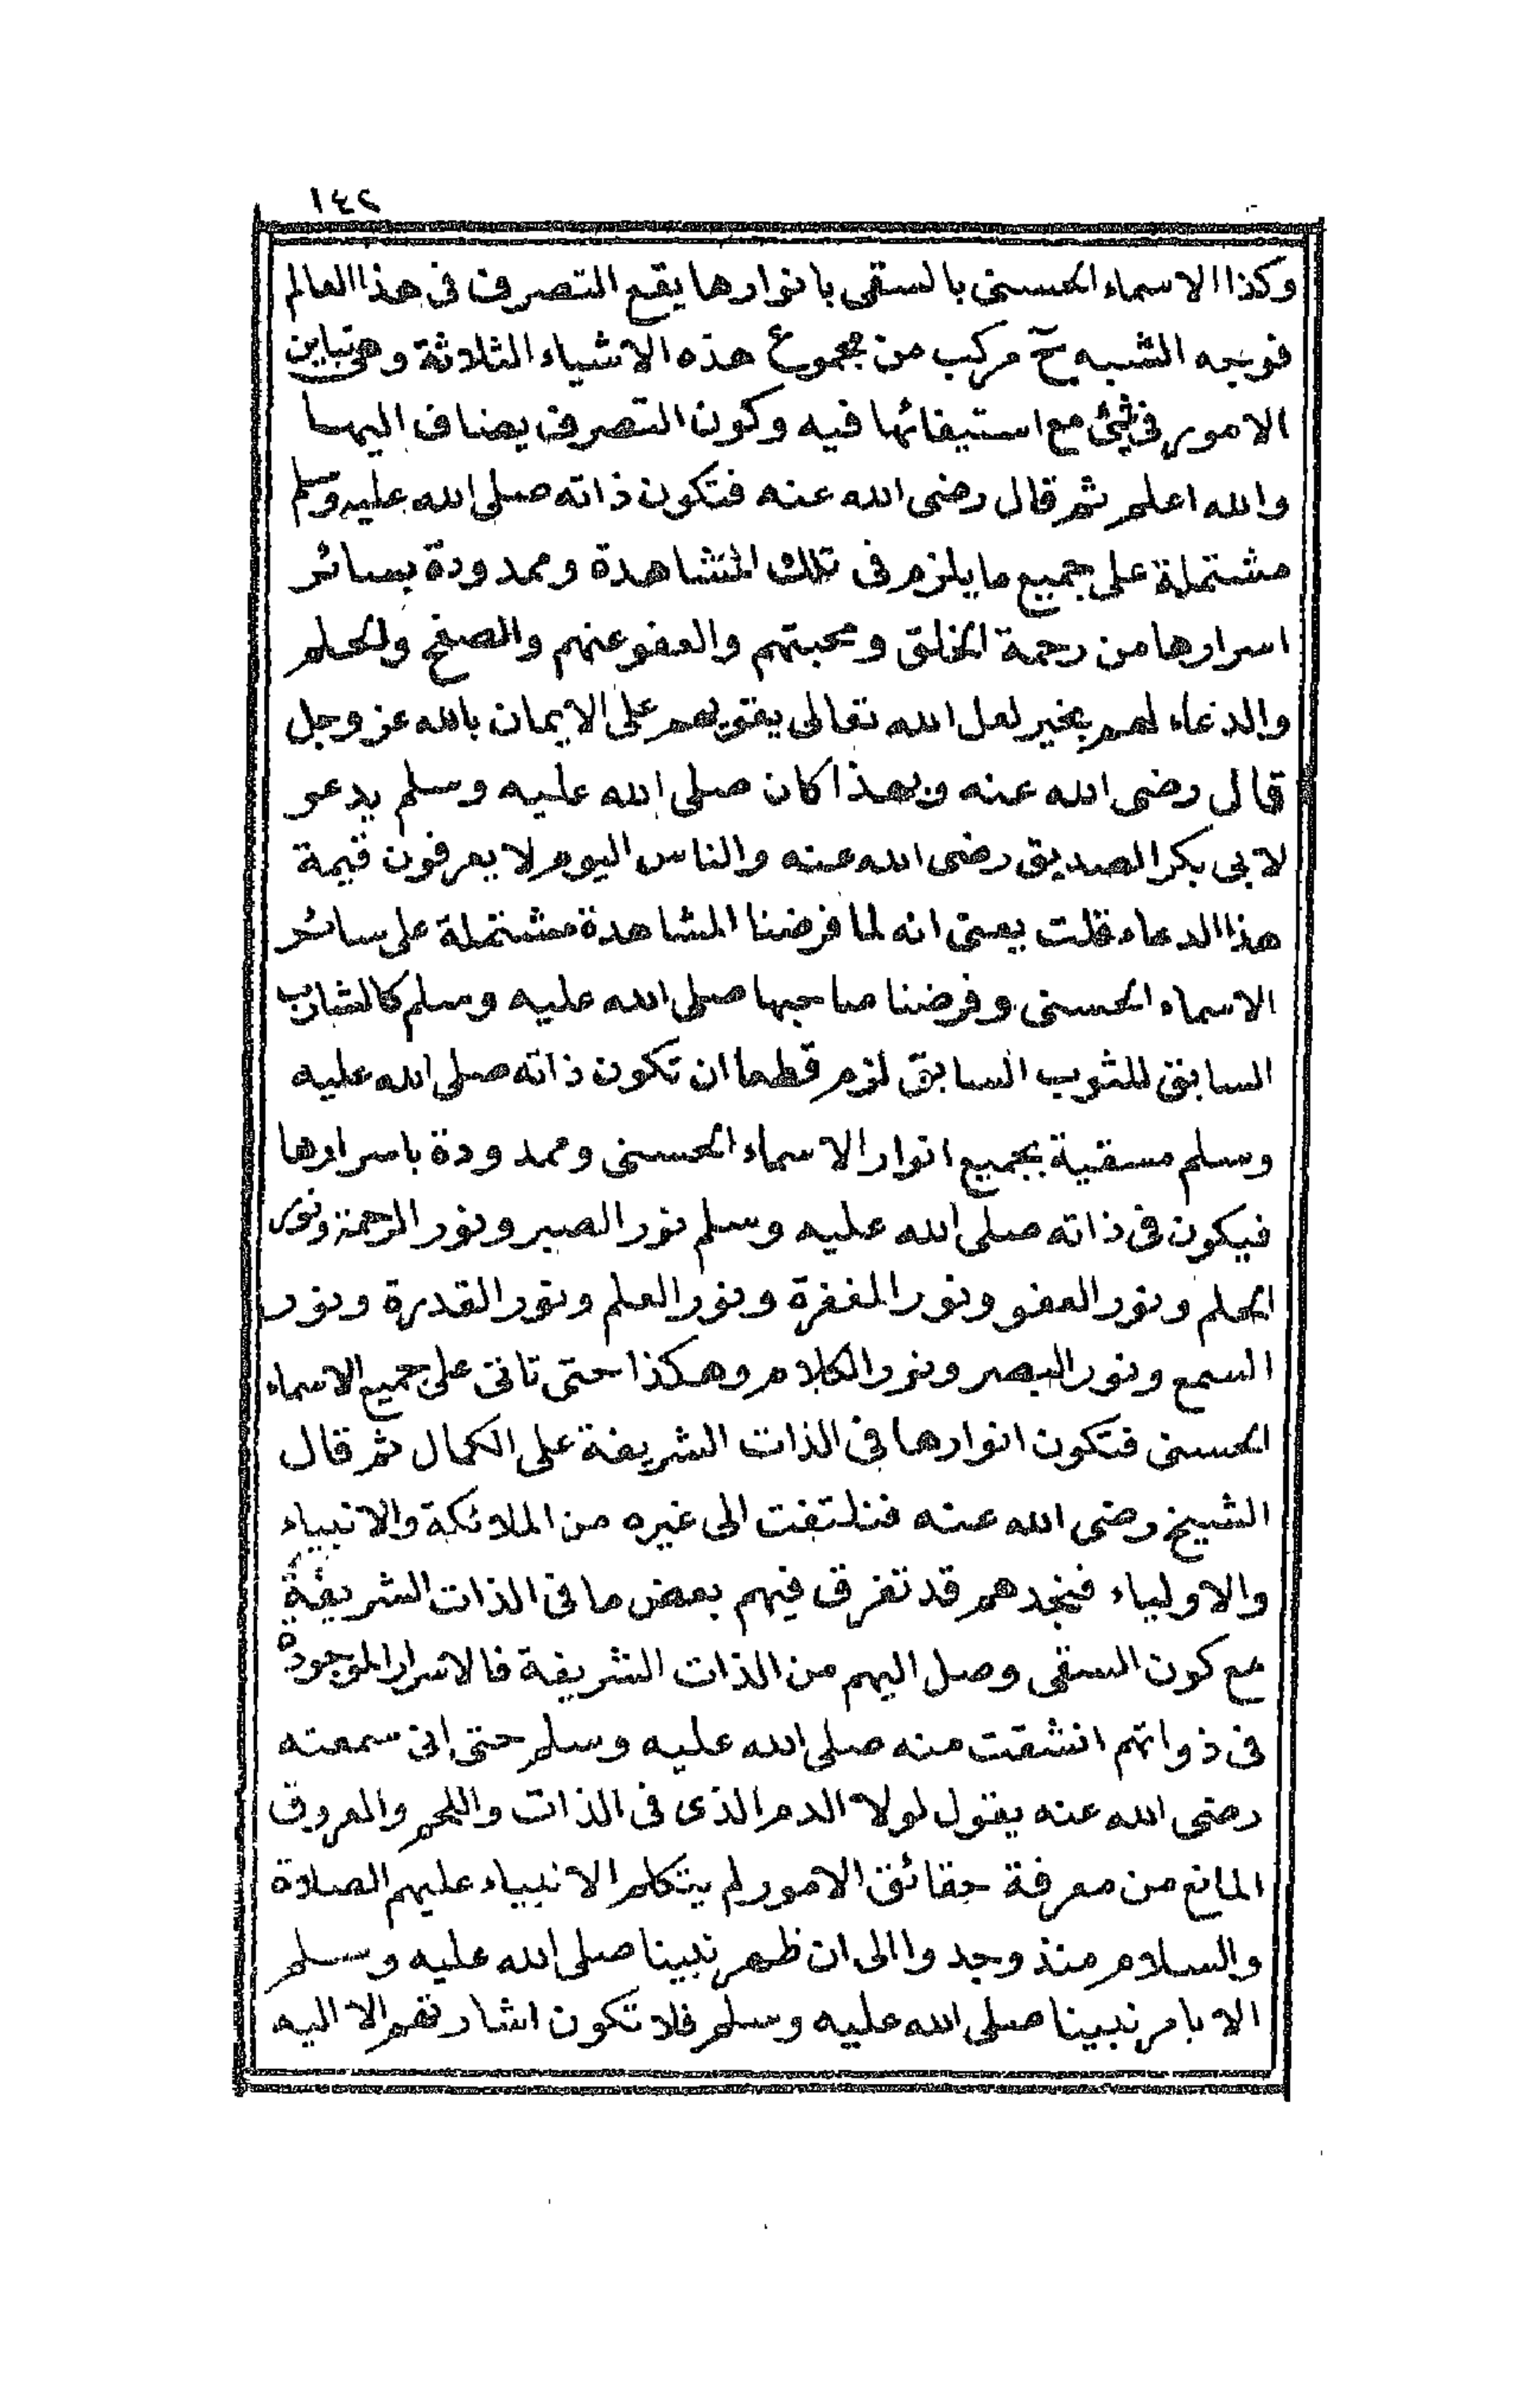 ١٤٢
وكذا الاسماء الحسنى بالسقى بانوارها يقع التصرف فى هذا العالم
فوجه الشبه ح مركب من مجموع هذه الاشياء الثلاثة وهى تباين
الامور فى شئ مع استيفائها فيه وكون التصرف يضاف اليها
والله اعلم ثم قال رضى الله عنه فتكون ذاته صلى الله عليه وسلم
مشتملة على جميع ما يلزم فى تلك المشاهدة وممدودة بسائر
اسرارها من رحمة الخلق ومحبتهم والعفو عنهم والصفح والحلم
والدعاء لهم بخير لعل الله تعالى يقويهم على الايمان بالله عز وجل
قال رضى الله عنه وبهذا كان صلى الله عليه وسلم يدعو
لابى بكر الصديق رضى الله عنه والناس اليوم لا يعرفون قيمة
هذا الدعاء قلت يعنى انه لما فرضنا المشاهدة مشتملة على سائر
الاسماء الحسنى وفرضنا صاحبها صلى الله عليه وسلم كالشارب
السابق للثوب السابق لزم قطعا ان تكون ذاته صلى الله عليه
وسلم مسقية بجميع انوار الاسماء الحسنى وممدودة باسرارها
فيكون فى ذاته صلى الله عليه وسلم نور الصبر ونور الرحمة ونور
الحلم ونور العفو ونور المغفرة ونور العلم ونور القدرة ونور
السمع ونور البصر ونور الكلام وهكذا حتى تاتى على جميع الاسماء
الحسنى فتكون انوارها فى الذات الشريفة على الكمال ثم قال
الشيخ رضى الله عنه فنلتفت الى غيره من الملائكة والانبياء
والاولياء فنجدهم قد تفرق فيهم بعض ما فى الذات الشريفة
مع كون السقى وصل اليهم من الذات الشريفة فالاسرار الموجودة
فى ذواتهم انشقت منه صلى الله عليه وسلم حتى انى سمعته
رضى الله عنه يقول لولا الدم الذى فى الذات واللحم والعروق
المانع من معرفة حقائق الامور لم يتكلم الانبياء عليهم الصلاة
والسلام منذ وجدوا الى ان ظهر نبينا صلى الله عليه وسلم
الا بامر نبينا صلى الله عليه وسلم فلا تكون اشارتهم الا اليه